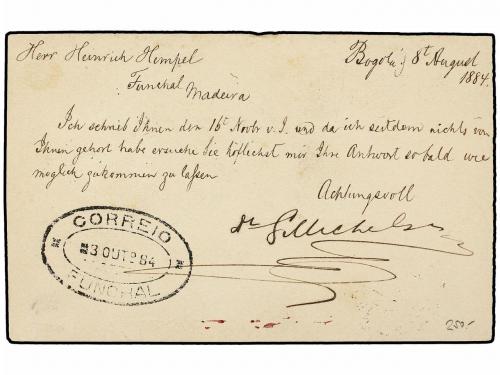 Herr Heinrich Hempel
Funchal
Madeira
Bogotá, 8t August
1884.
Ich schrieb Ihnen den 16t Novbr v. J. und da ich seitdem nichts von
Ihnen gehort habe ersuche Sie höflichst mir Ihre Antwort so bald wie
moglich zukommen zu lassen
Achtungsvoll
CORREIO
3 OUT 84
FUNCHAL
250.-